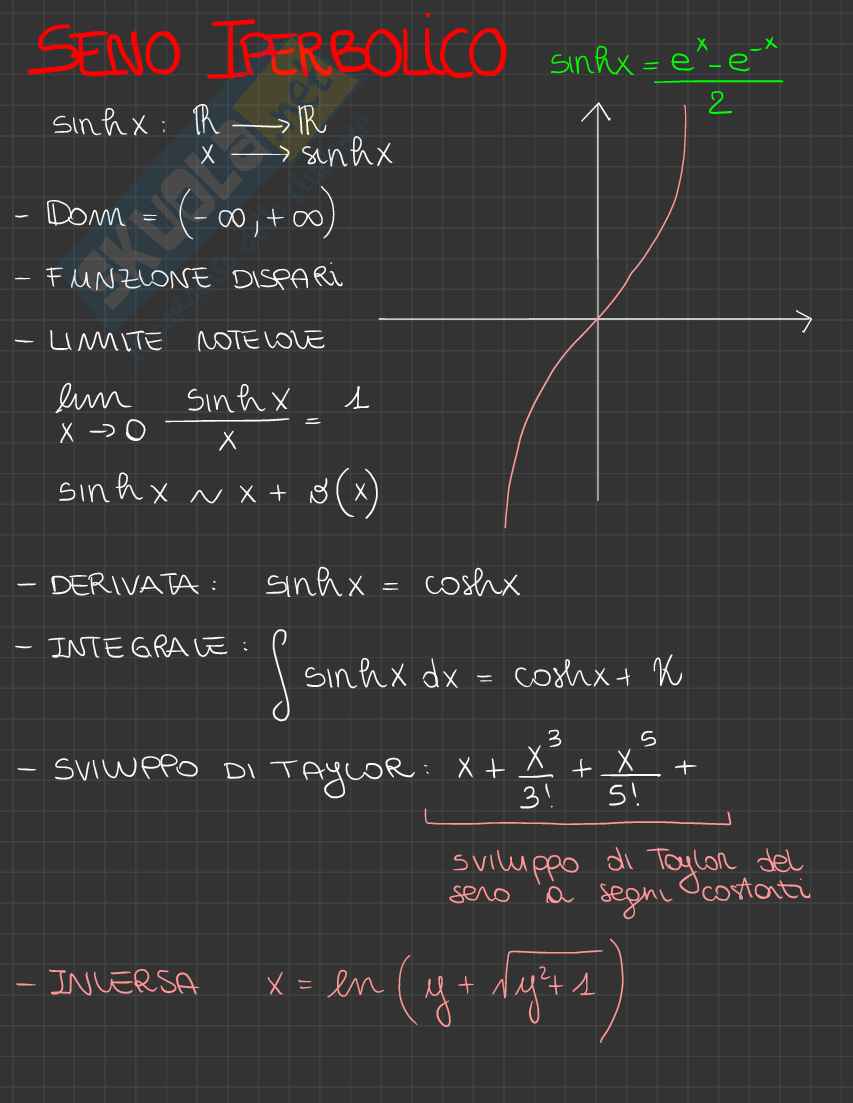 SENO IPERBOLICO
sinhx = (e^x - e^-x)/2
sinhx: ℝ → ℝ
x → sinhx
- DOM = (-∞, +∞)
- FUNZIONE DISPARI
- LIMITE NOTEVOLE
lim x→0 sinhx/x = 1
sinhx ~ x + o(x)
- DERIVATA: sinhx = coshx
- INTEGRALE: ∫ sinhx dx = coshx + K
- SVILUPPO DI TAYLOR: x + x^3/3! + x^5/5! +
sviluppo di Taylor del
seno a segni costanti
- INVERSA x = ln(y + √(y²+1))
SKUOLA.net